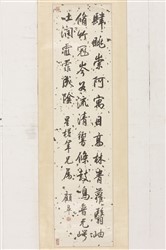 肆眺崇阿寓目高林青蘿翳岫
脩竹冠岑谷流清響條鼓鳴音玄崿
吐潤霏霧成陰 兄屬